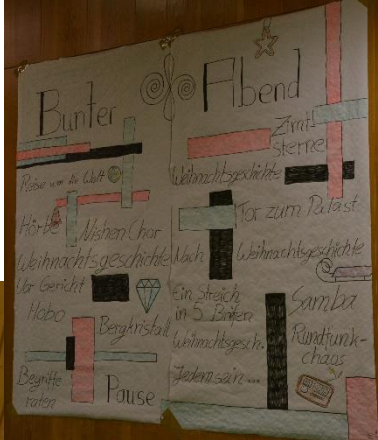 Bunter Abend
Reise um die Welt
Hört
Nishen Chor
Weihnachtsgeschichte
Vor Gericht
Hobo
Bergkristall
Begriffe
raten
Pause
Zimt
sterne
Weihnachtsgeschichte
Tor zum Palast
Nach
Weihnachtsgeschichte
Ein Streich
in 5 Bildern
Samba
Weihnachtsgesch.
Rundfunk-
chaos
Jedem sein ...